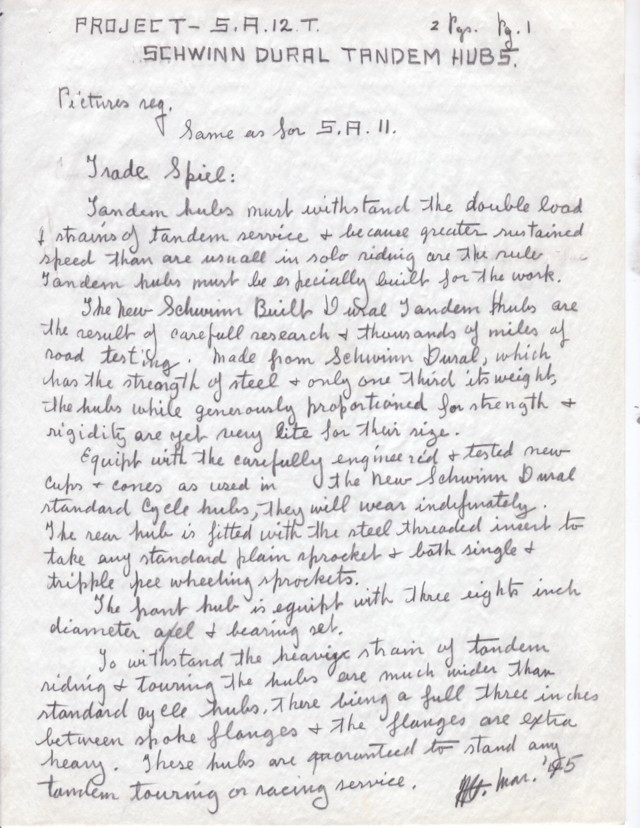 PROJECT- S.A.12.T. 2 Pgs. Pg.1
SCHWINN DURAL TANDEM HUBS.
Pictures req.
Same as for S.A.11.
Trade Spiel:
Tandem hubs must withstand the double load
& strains of tandem service & because greater sustained
speed than are usuall in solo riding are the rule
Tandem hubs must be especially built for the work.
The new Schwinn Built Dural Tandem Hubs are
the result of carefull research & thousands of miles of
road testing. Made from Schwinn Dural, which
has the strength of steel & only one third its weight,
the hubs while generously proportioned for strength &
rigidity are yet very lite for their size.
Equipt with the carefully engineered & tested new
cups & cones as used in the new Schwinn Dural
standard Cycle hubs, they will wear indefinately.
The rear hub is fitted with the steel threaded insert to
take any standard plain sprocket & both single &
tripple free wheeling sprockets.
The front hub is equipt with three eights inch
diameter axel & bearing set.
To withstand the heavier strain of tandem
riding & touring the hubs are much wider than
standard cycle hubs. There being a full three inches
between spoke flanges & the flanges are extra
heavy. These hubs are guaranteed to stand any
tandem touring or racing service. Mar. '45